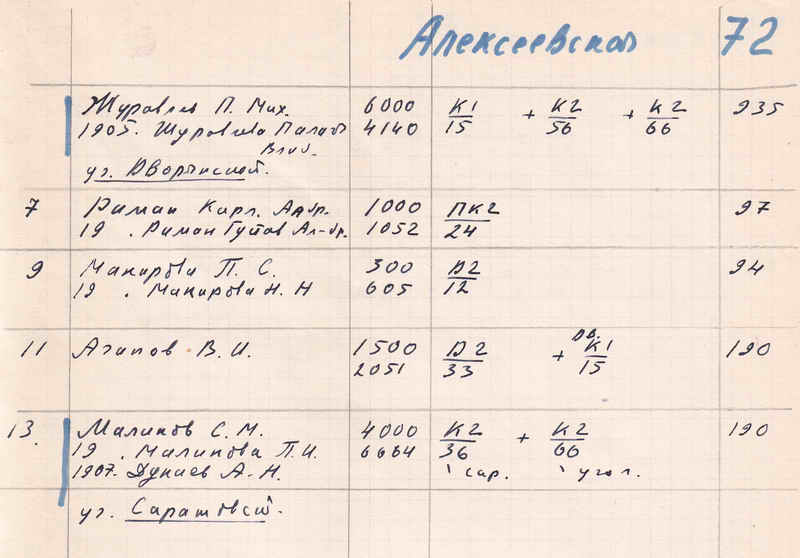 Алексеевская 72
Журавлев П. Мих. 6000 К1/15 + К2/56 + К2/66 935
1905. Журавлева Палаг 4140
Влад.
уг. Дворянской.
7 Риман Карл. Ад-др. 1000 ПК2/24 97
19 . Риман Густав Ал-др. 1052
9 Макарова П. С. 300 D2/12 94
19 . Макарова Н. Н 605
11 Агапов В. И. 1500 D2/33 + дв. К1/15 190
2051
13. Малинов С. М. 4000 К2/36 + К2/66 190
19 . Малинова П. И. 6664 сар. угол.
1907. Дунаев А. Н.
уг. Саратовской.